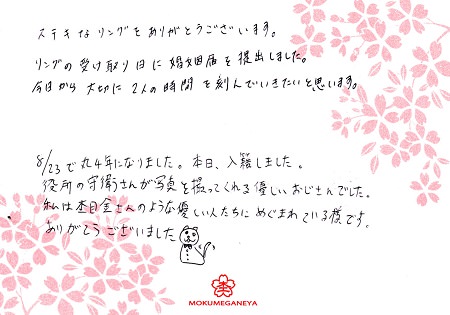 ステキなリングをありがとうございます。
リングの受け取り日に婚姻届を提出しました。
今日から大切に2人の時間を刻んでいきたいと思います。
8/23で丸4年になりました。本日、入籍しました。
役所の守衛さんが写真を撮ってくれる優しいおじさんでした。
私は杢目金さんのような優しい人たちにめぐまれている様です。
ありがとうございました
MOKUMEGANEYA